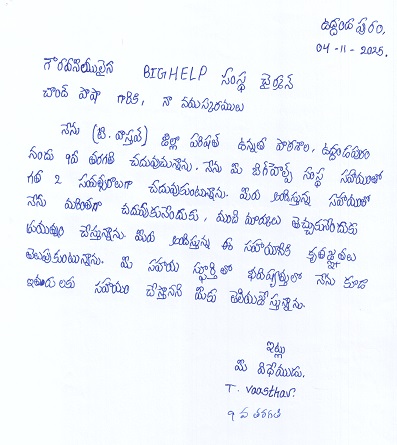 ఉద్దండపురం,
04-11-2025.
గౌరవనీయులైన BIGHELP సంస్థ ఛైర్మన్
చాంద్ పాషా గారికి, నా నమస్కారములు
నేను (టి. వాస్తవ్) జిల్లా పరిషత్ ఉన్నత పాఠశాల, ఉద్దండపురం
నందు 9వ తరగతి చదువుచున్నాను. నేను మీ బిగ్‌హెల్ప్ సంస్థ సహాయంతో
గత 2 సంవత్సరాలుగా చదువుకుంటున్నాను. మీరు అందిస్తున్న సహాయంతో
నేను మరింతగా చదువుకునేందుకు, మంచి మార్కులు తెచ్చుకునేందుకు
ప్రయత్నం చేస్తున్నాను. మీరు అందిస్తున్న ఈ సహాయానికి కృతజ్ఞతలు
తెలుపుకుంటున్నాను. మీ సహాయ స్ఫూర్తితో భవిష్యత్తులో నేను కూడా
ఇతరులకు సహాయం చేస్తానని మీకు తెలియజేస్తున్నాను.
ఇట్లు
మీ విధేయుడు.
T. Vaasthav.
9 వ తరగతి